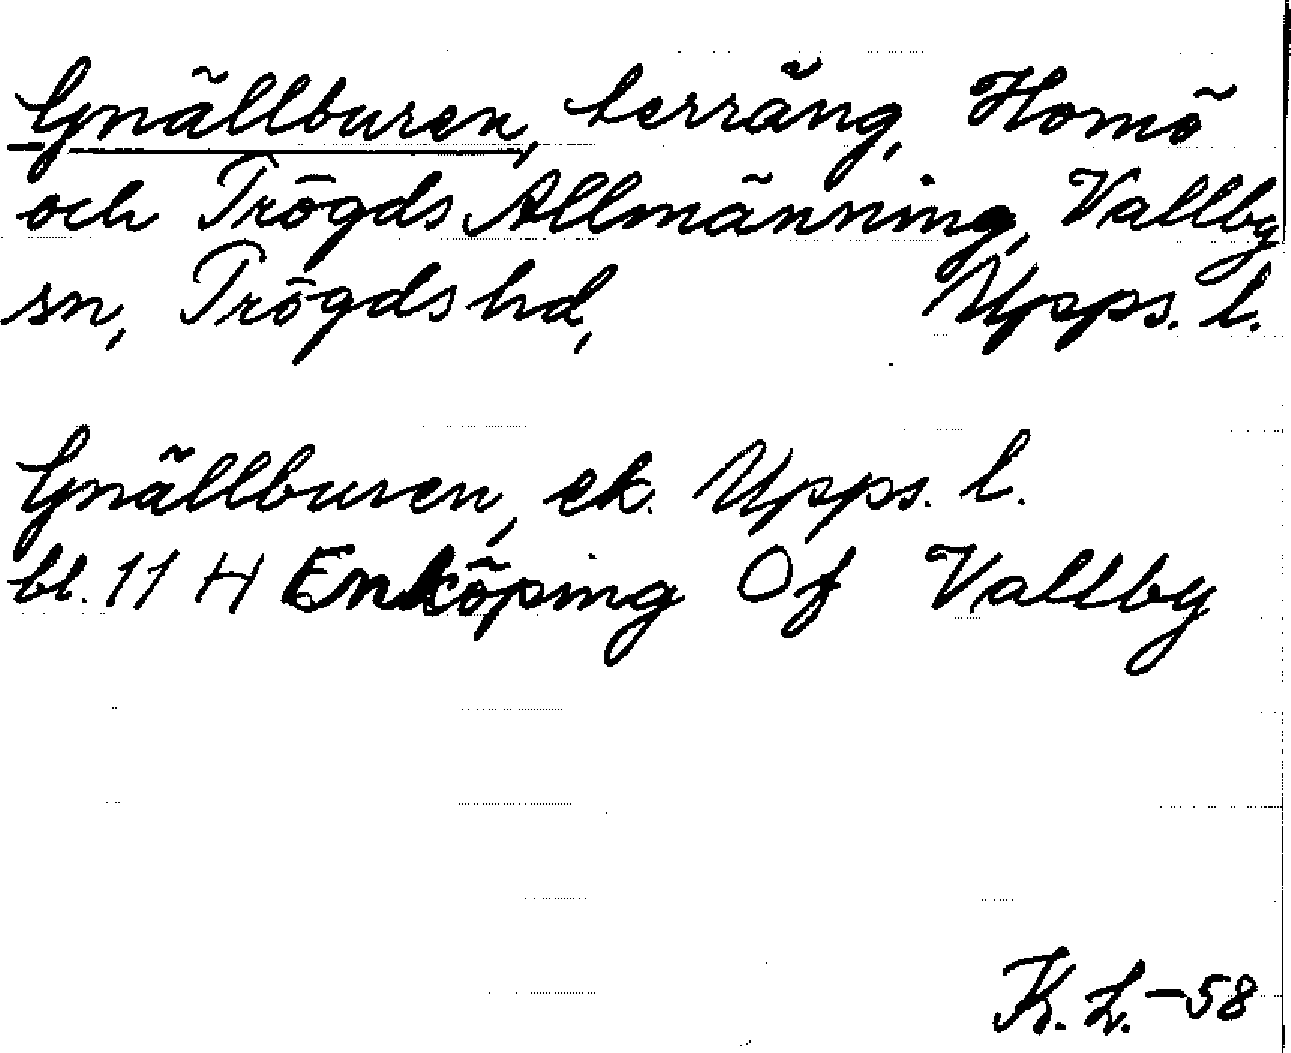 Gnällburen, terräng, Homö
och Trögds Allmänning, Vallby
sn, Trögds hd, Upps. l.
Gnällburen, ek. Upps. l.
bl. 11 H Enköping Of Vallby
K. L. -58